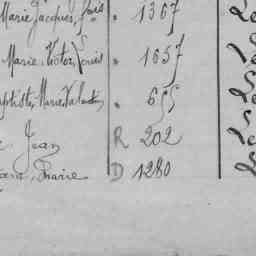 Marie Jacques, Louis " 1367 Le
Marie, Victor, Louis " 1657 Le
Baptiste, Marie, Valentin " 655 Le
Jean R 202 Le
Marie D 1280